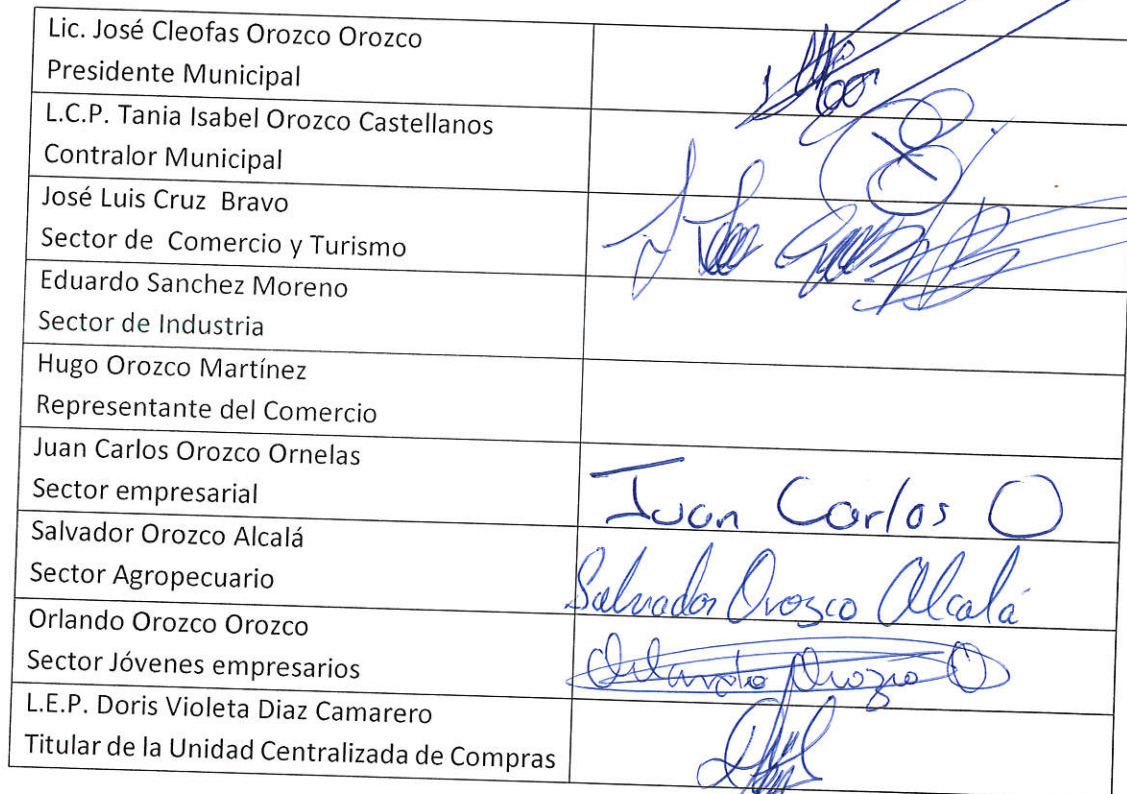 Lic. José Cleofas Orozco Orozco
Presidente Municipal
L.C.P. Tania Isabel Orozco Castellanos
Contralor Municipal
José Luis Cruz Bravo
Sector de Comercio y Turismo
Eduardo Sanchez Moreno
Sector de Industria
Hugo Orozco Martínez
Representante del Comercio
Juan Carlos Orozco Ornelas
Sector empresarial
Juan Carlos O
Salvador Orozco Alcalá
Sector Agropecuario
Salvador Orozco Alcalá
Orlando Orozco Orozco
Sector Jóvenes empresarios
Orlando Orozco O
L.E.P. Doris Violeta Diaz Camarero
Titular de la Unidad Centralizada de Compras